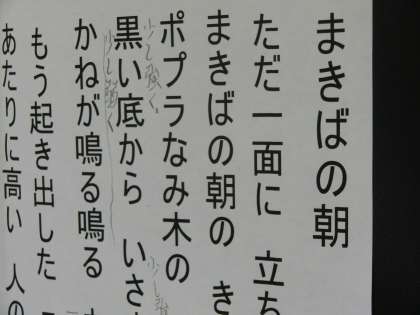 まきばの朝
ただ一面に 立ち
まきばの朝の き
ポプラなみ木の
少し強く
黒い底から いさ
少し強く
かねが鳴る鳴る
もう起き出した
あたりに高い 人の